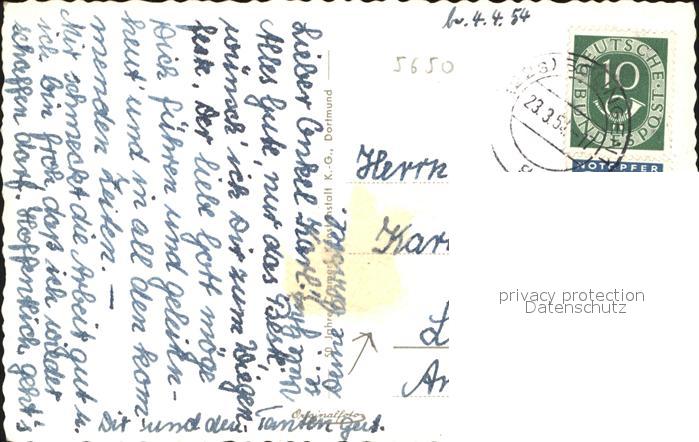 br. 4.4.54
5650
DEUTSCHE BUNDESPOST
10
23.3.54
NOTOPFER
Herrn
Kar
L
An
privacy protection
Datenschutz
Lieber Onkel Karl! Zum
Alles Gute, nur das Beste
wünsch' ich Dir zum Wiegen
feste. Der liebe Gott möge
Dich führen und geleiten
heut' und in all den kom
menden Zeiten. —
Mir schmeckt die Arbeit gut u.
ich bin froh daß ich wieder
schaffen darf. Hoffentlich geht's
Dir und den Tanten gut.
K.-G., Dortmund
Originalfoto